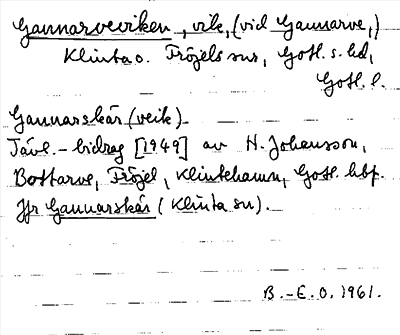 Gannarveviken, vik, (vid Gannarve,)
Klinta o. Fröjels snr, Gotl. s. hd,
Gotl. l.
Gannarskär (veik)
Tävl.-bidrag [1949] av H. Johansson,
Bottarve, Fröjel, Klintehamn, Gotl. hbf.
Jfr Gannarskär (Klinta sn).
B.-E.O. 1961.